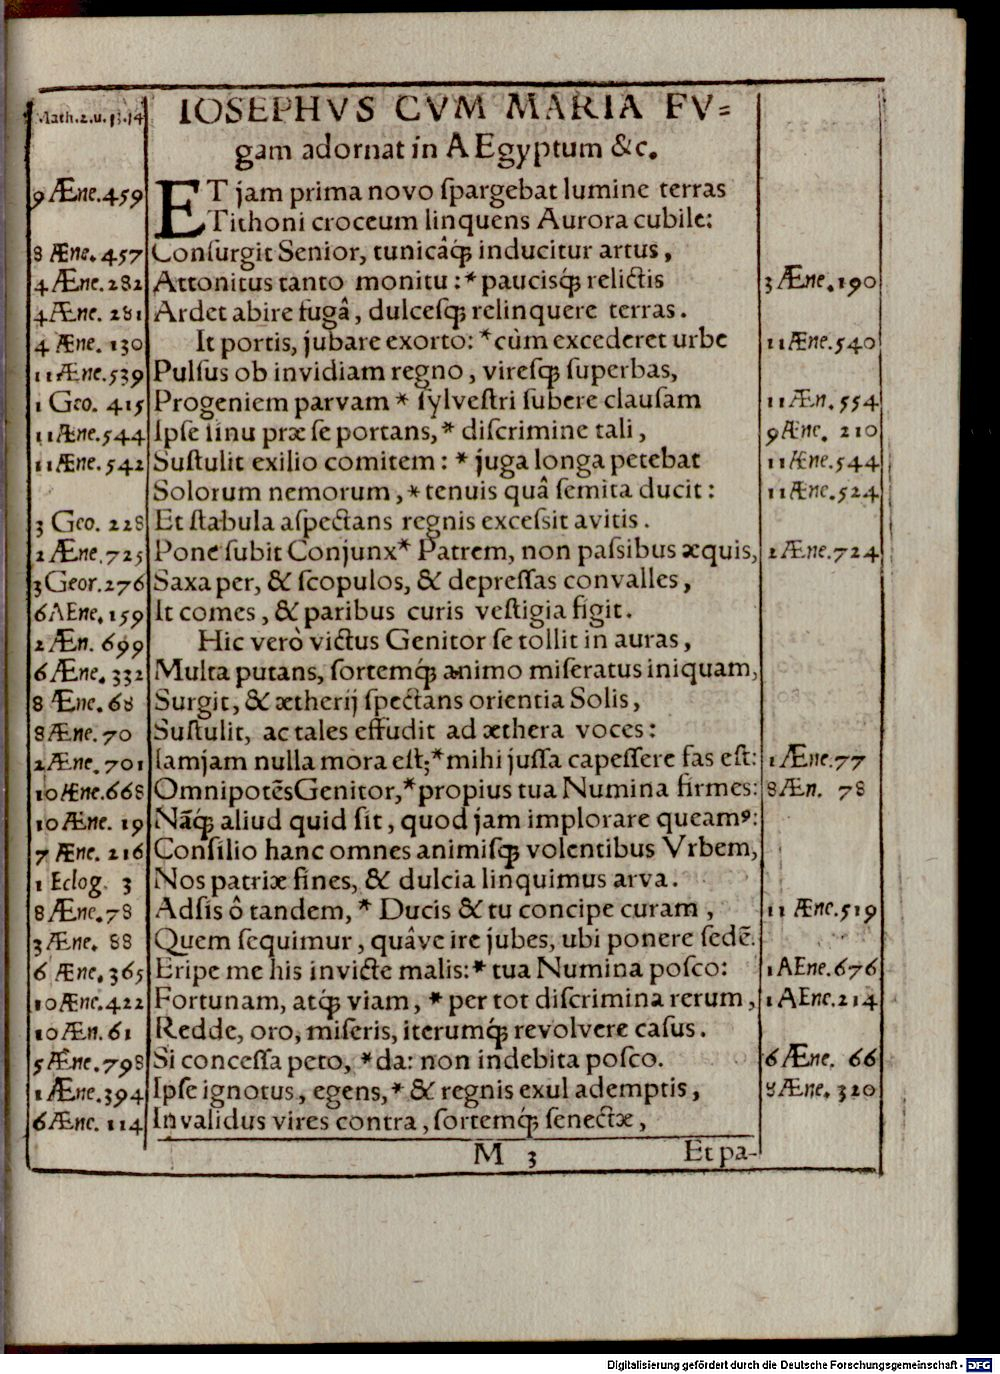 Math.2.u.13.14 IOSEPHVS CVM MARIA FV=
gam adornat in AEgyptum &c.
9 Æne.459 ET jam prima novo ſpargebat lumine terras
Tithoni croceum linquens Aurora cubile:
8 Æne.457 Conſurgit Senior, tunicâq; inducitur artus,
4 Æne.282 Attonitus tanto monitu: * paucisq́; relictis 3 Æne.190
4 Æne. 281 Ardet abire fugâ, dulcesq; relinquere terras.
4 Æne. 130 It portis, jubare exorto: * cùm excederet urbe 11 Æne.540
11 Æne.539 Pulſus ob invidiam regno, viresq; ſuperbas,
1 Geo. 415 Progeniem parvam * ſylveſtri ſubere clauſam 11 Æn. 554
11 Æne.544 Ipſe ſinu præ ſe portans, * diſcrimine tali, 9 Æne. 210
11 Æne.542 Suſtulit exilio comitem: * juga longa petebat 11 Æne.544
Solorum nemorum, * tenuis quâ ſemita ducit: 11 Æne.524
3 Geo. 228 Et ſtabula aſpectans regnis exceſsit avitis.
2 Æne.725 Pone ſubit Conjunx * Patrem, non paſsibus æquis, 2 Æne.724
3 Geor.276 Saxa per, & ſcopulos, & depreſſas convalles,
6 AEne.159 It comes, & paribus curis veſtigia figit.
2 Æn. 699 Hic verò victus Genitor ſe tollit in auras,
6 Æne. 332 Multa putans, ſortemq́; animo miſeratus iniquam,
8 Æne.68 Surgit, & ætherij ſpectans orientia Solis,
8 Æne.70 Suſtulit, ac tales effudit ad æthera voces:
2 Æne.701 Iamjam nulla mora eſt; * mihi juſſa capeſſere fas eſt: 1 Æne.77
10 Æne.668 OmnipotẽsGenitor, * propius tua Numina firmes: 8 Æn. 78
10 Æne. 19 Nãq; aliud quid ſit, quod jam implorare queamꝰ:
7 Æne. 216 Conſilio hanc omnes animisq; volentibus Vrbem,
1 Eclog. 3 Nos patriæ fines, & dulcia linquimus arva.
8 Æne.78 Adſis ô tandem, * Ducis & tu concipe curam, 11 Æne.519
3 Æne. 88 Quem ſequimur, quâve ire jubes, ubi ponere ſedẽ.
6 Æne.365 Eripe me his invicte malis: * tua Numina poſco: 1 AEne.676
10 Æne.422 Fortunam, atq́; viam, * per tot diſcrimina rerum, 1 AEne.214
10 Æn.61 Redde, oro, miſeris, iterumq́; revolvere caſus.
5 Æne.798 Si conceſſa peto, * da: non indebita poſco. 6 Æne. 66
1 Æne.394 Ipſe ignotus, egens, * & regnis exul ademptis, 8 Æne. 320
6 Æne. 114 Invalidus vires contra, ſortemq́; ſenectæ,
M 3 Et pa-
Digitalisierung gefördert durch die Deutsche Forschungsgemeinschaft - DFG